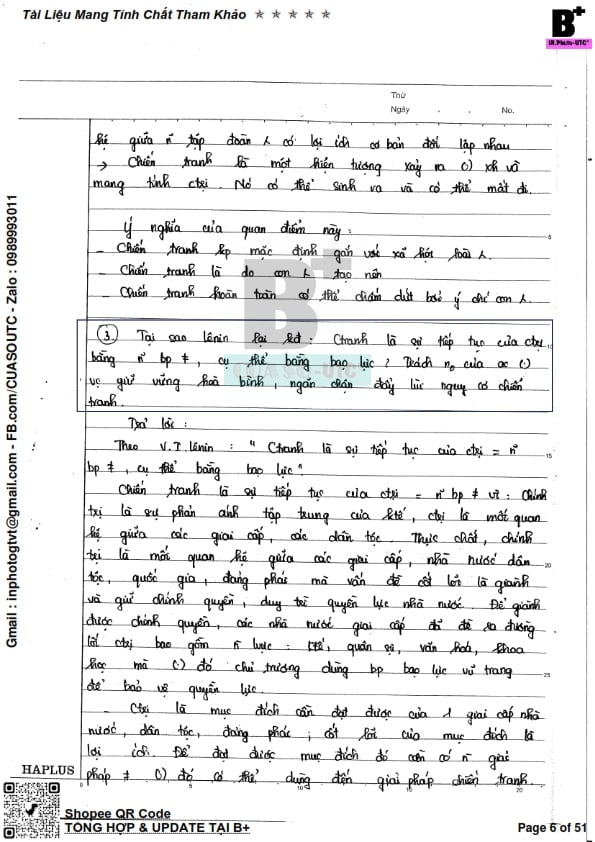 Tài Liệu Mang Tính Chất Tham Khảo ★ ★ ★ ★ ★
B+
IN.Photo-UTC
Thứ
Ngày . . No.
hệ giữa n tập đoàn λ có lợi ích cơ bản đối lập nhau
→ Chiến tranh là một hiện tượng xảy ra (.) xh và
mang tính ctrị. Nó có thể sinh ra và có thể mất đi.
Ý nghĩa của quan điểm này:
- Chiến tranh kp mặc định gắn với xã hội loài λ.
- Chiến tranh là do con λ tạo nên
- Chiến tranh hoàn toàn có thể chấm dứt bởi ý chí con λ.
③ Tại sao Lênin lại kđ: Ctranh là sự tiếp tục của ctrị
bằng n bp ≠, cụ thể bằng bạo lực? Trách n₀ của ae (.)
vc giữ vững hoà bình, ngăn chặn đẩy lùi nguy cơ chiến
tranh.
Trả lời:
Theo V.I.Lênin: "Ctranh là sự tiếp tục của ctrị = n
bp ≠, cụ thể bằng bạo lực"
Chiến tranh là sự tiếp tục của ctrị = n bp ≠ vì: Chính
trị là sự phản ánh tập trung của ktế, ctrị là mối quan
hệ giữa các giai cấp, các dân tộc. Thực chất, chính
trị là mối quan hệ giữa các giai cấp, nhà nước dân
tộc, quốc gia, đảng phái mà vấn đề cốt lõi là giành
và giữ chính quyền, duy trì quyền lực nhà nước. Để giành
được chính quyền, các nhà nước giai cấp đã đề ra đường
lối ctrị bao gồm n lvực: ktế, quân sự, văn hoá, khoa
học mà (.) đó chủ trương dùng bp bạo lực vũ trang
để bảo vệ quyền lực.
- Ctrị là mục đích cần đạt được của 1 giai cấp nhà
nước, dân tộc, đảng phái; cốt lõi của mục đích là
lợi ích. Để đạt được mục đích đó cần có n giải
pháp ≠ (.) đó có thể dùng đến giải pháp chiến tranh.
5
10
15
20
25
0 5 10 15 20
HAPLUS
B+
CUASO-UTC
Gmail : inphotogtvt@gmail.com - FB.com/CUASOUTC - Zalo : 0989993011
Shopee QR Code
TỔNG HỢP & UPDATE TẠI B+
Page 6 of 51